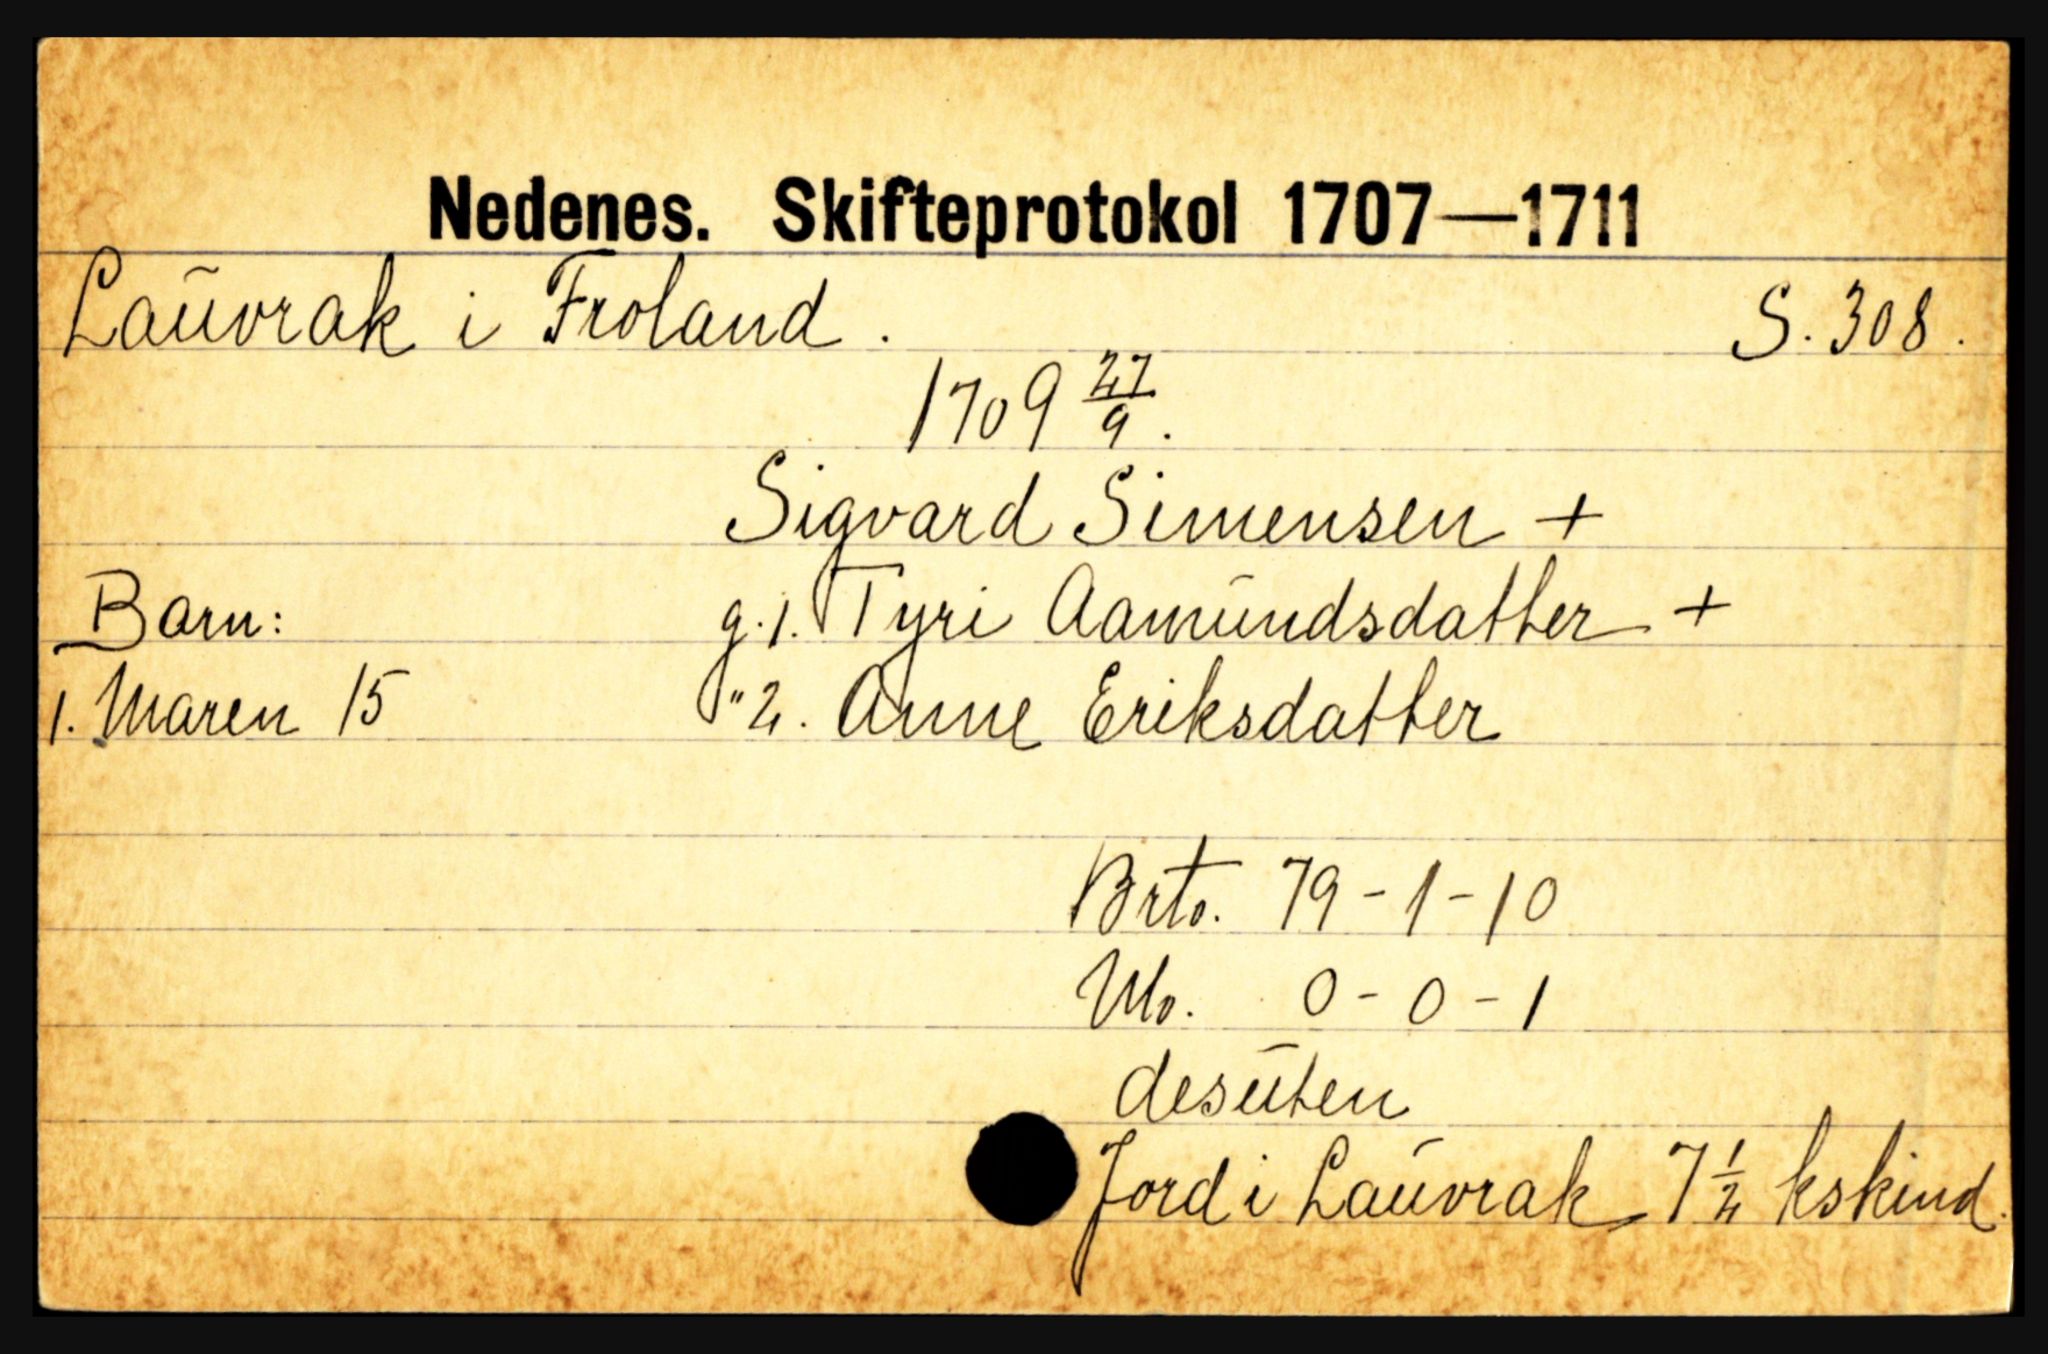 Nedenes. Skifteprotokol 1707—1711
Lauvrak i Froland. S. 308.
1709 27/9.
Sigvard Simensen +
Barn: g. 1. Tyri Aamundsdatter +
1. Maren 15 " 2. Anne Eriksdatter
Brto. 79-1-10
Nto. 0-0-1
desuten
Jord i Lauvrak 7 1/2 kskind.